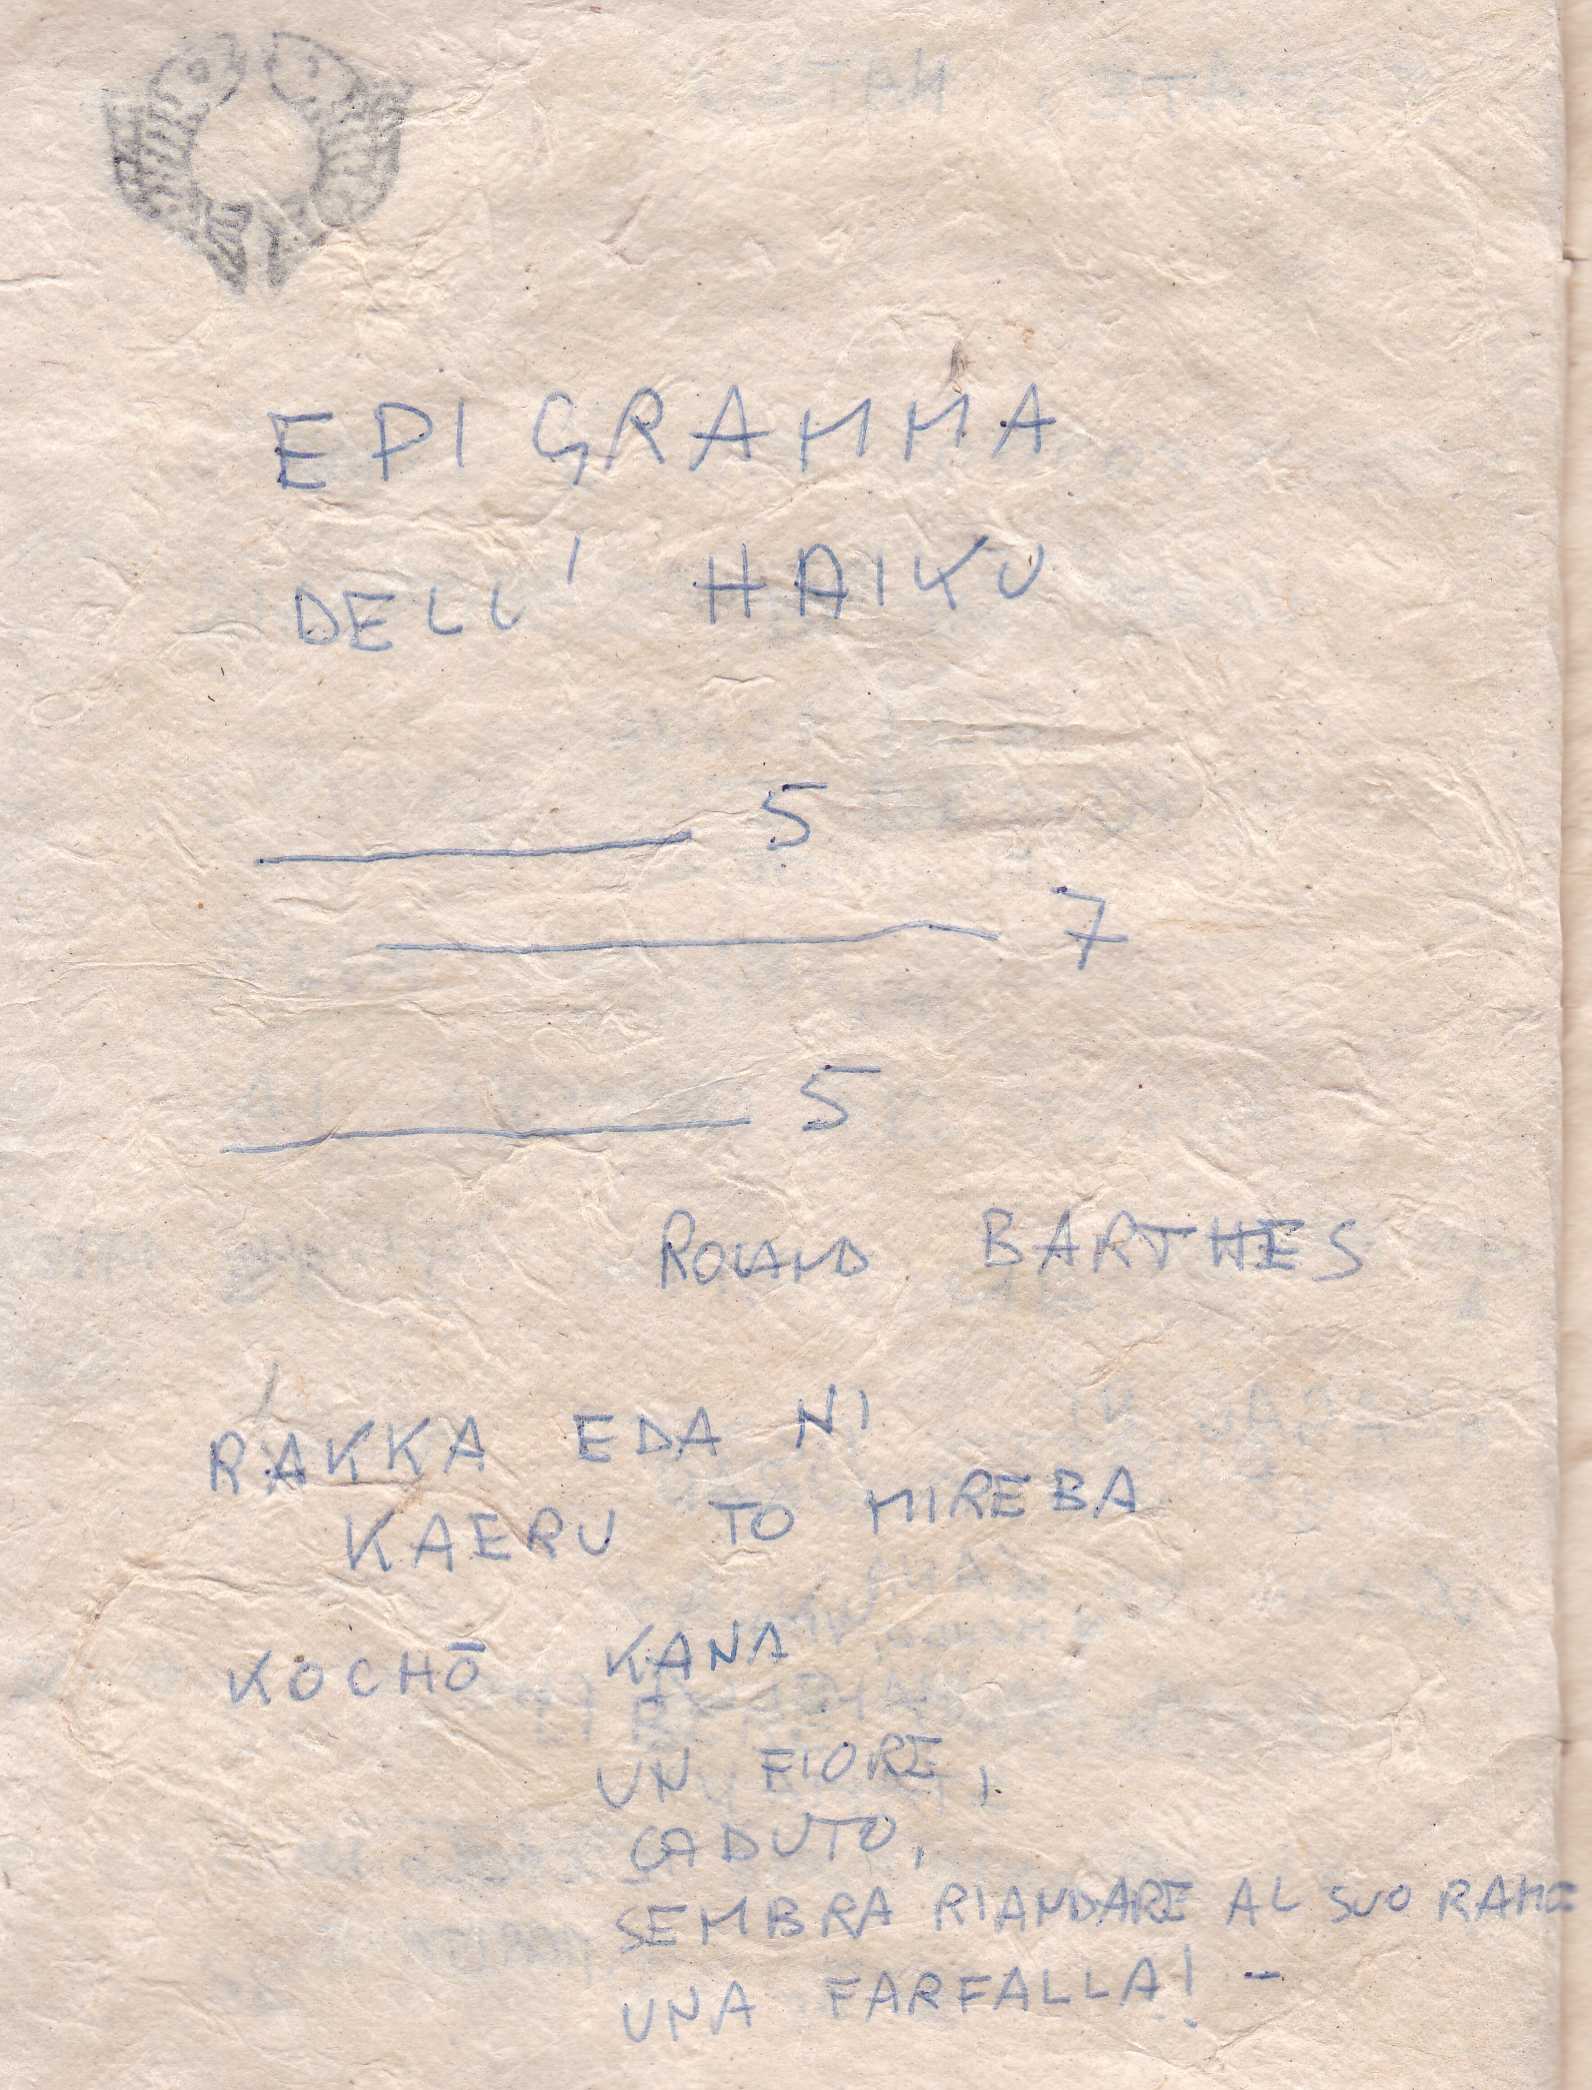 EPIGRAMMA
DELL' HAIKU
5
7
5
ROLAND BARTHES
RAKKA EDA NI
KAERU TO MIREBA
KOCHŌ KANA
UN FIORE,
CADUTO,
SEMBRA RIANDARE AL SUO RAMO
UNA FARFALLA! -